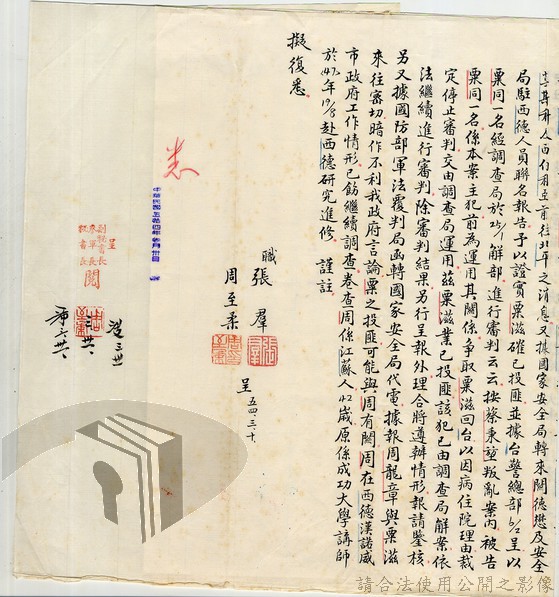 局駐西德人員聯名報告予以證實粟滋確已投匪並據台警總部6/2呈以
粟同一名經調查局於25/1解部進行審判云云按蔡東堃叛亂案內被告
粟同一名係本案主犯前為運用其關係爭取粟滋回台以因病住院理由裁
定停止審判交由調查局運用茲粟滋業已投匪該犯已由調查局解案依
法繼續進行審判除審判結果另行呈報外理合將遵辦情形報請鑒核
另又據國防部軍法覆判局函轉國家安全局代電據報周龍章與粟滋
來往密切暗作不利我政府言論粟之投匪可能與周有關周在西德漢諾威
市政府工作情形已飭繼續調查卷查周係江蘇人42歲原係成功大學講師
於47年19/8赴西德研究進修 謹註
擬復悉
職張羣
周至柔
呈 五四、三、十、
悉
呈
副秘書長
參軍長
秘書長
閱
請合法使用公開之影像